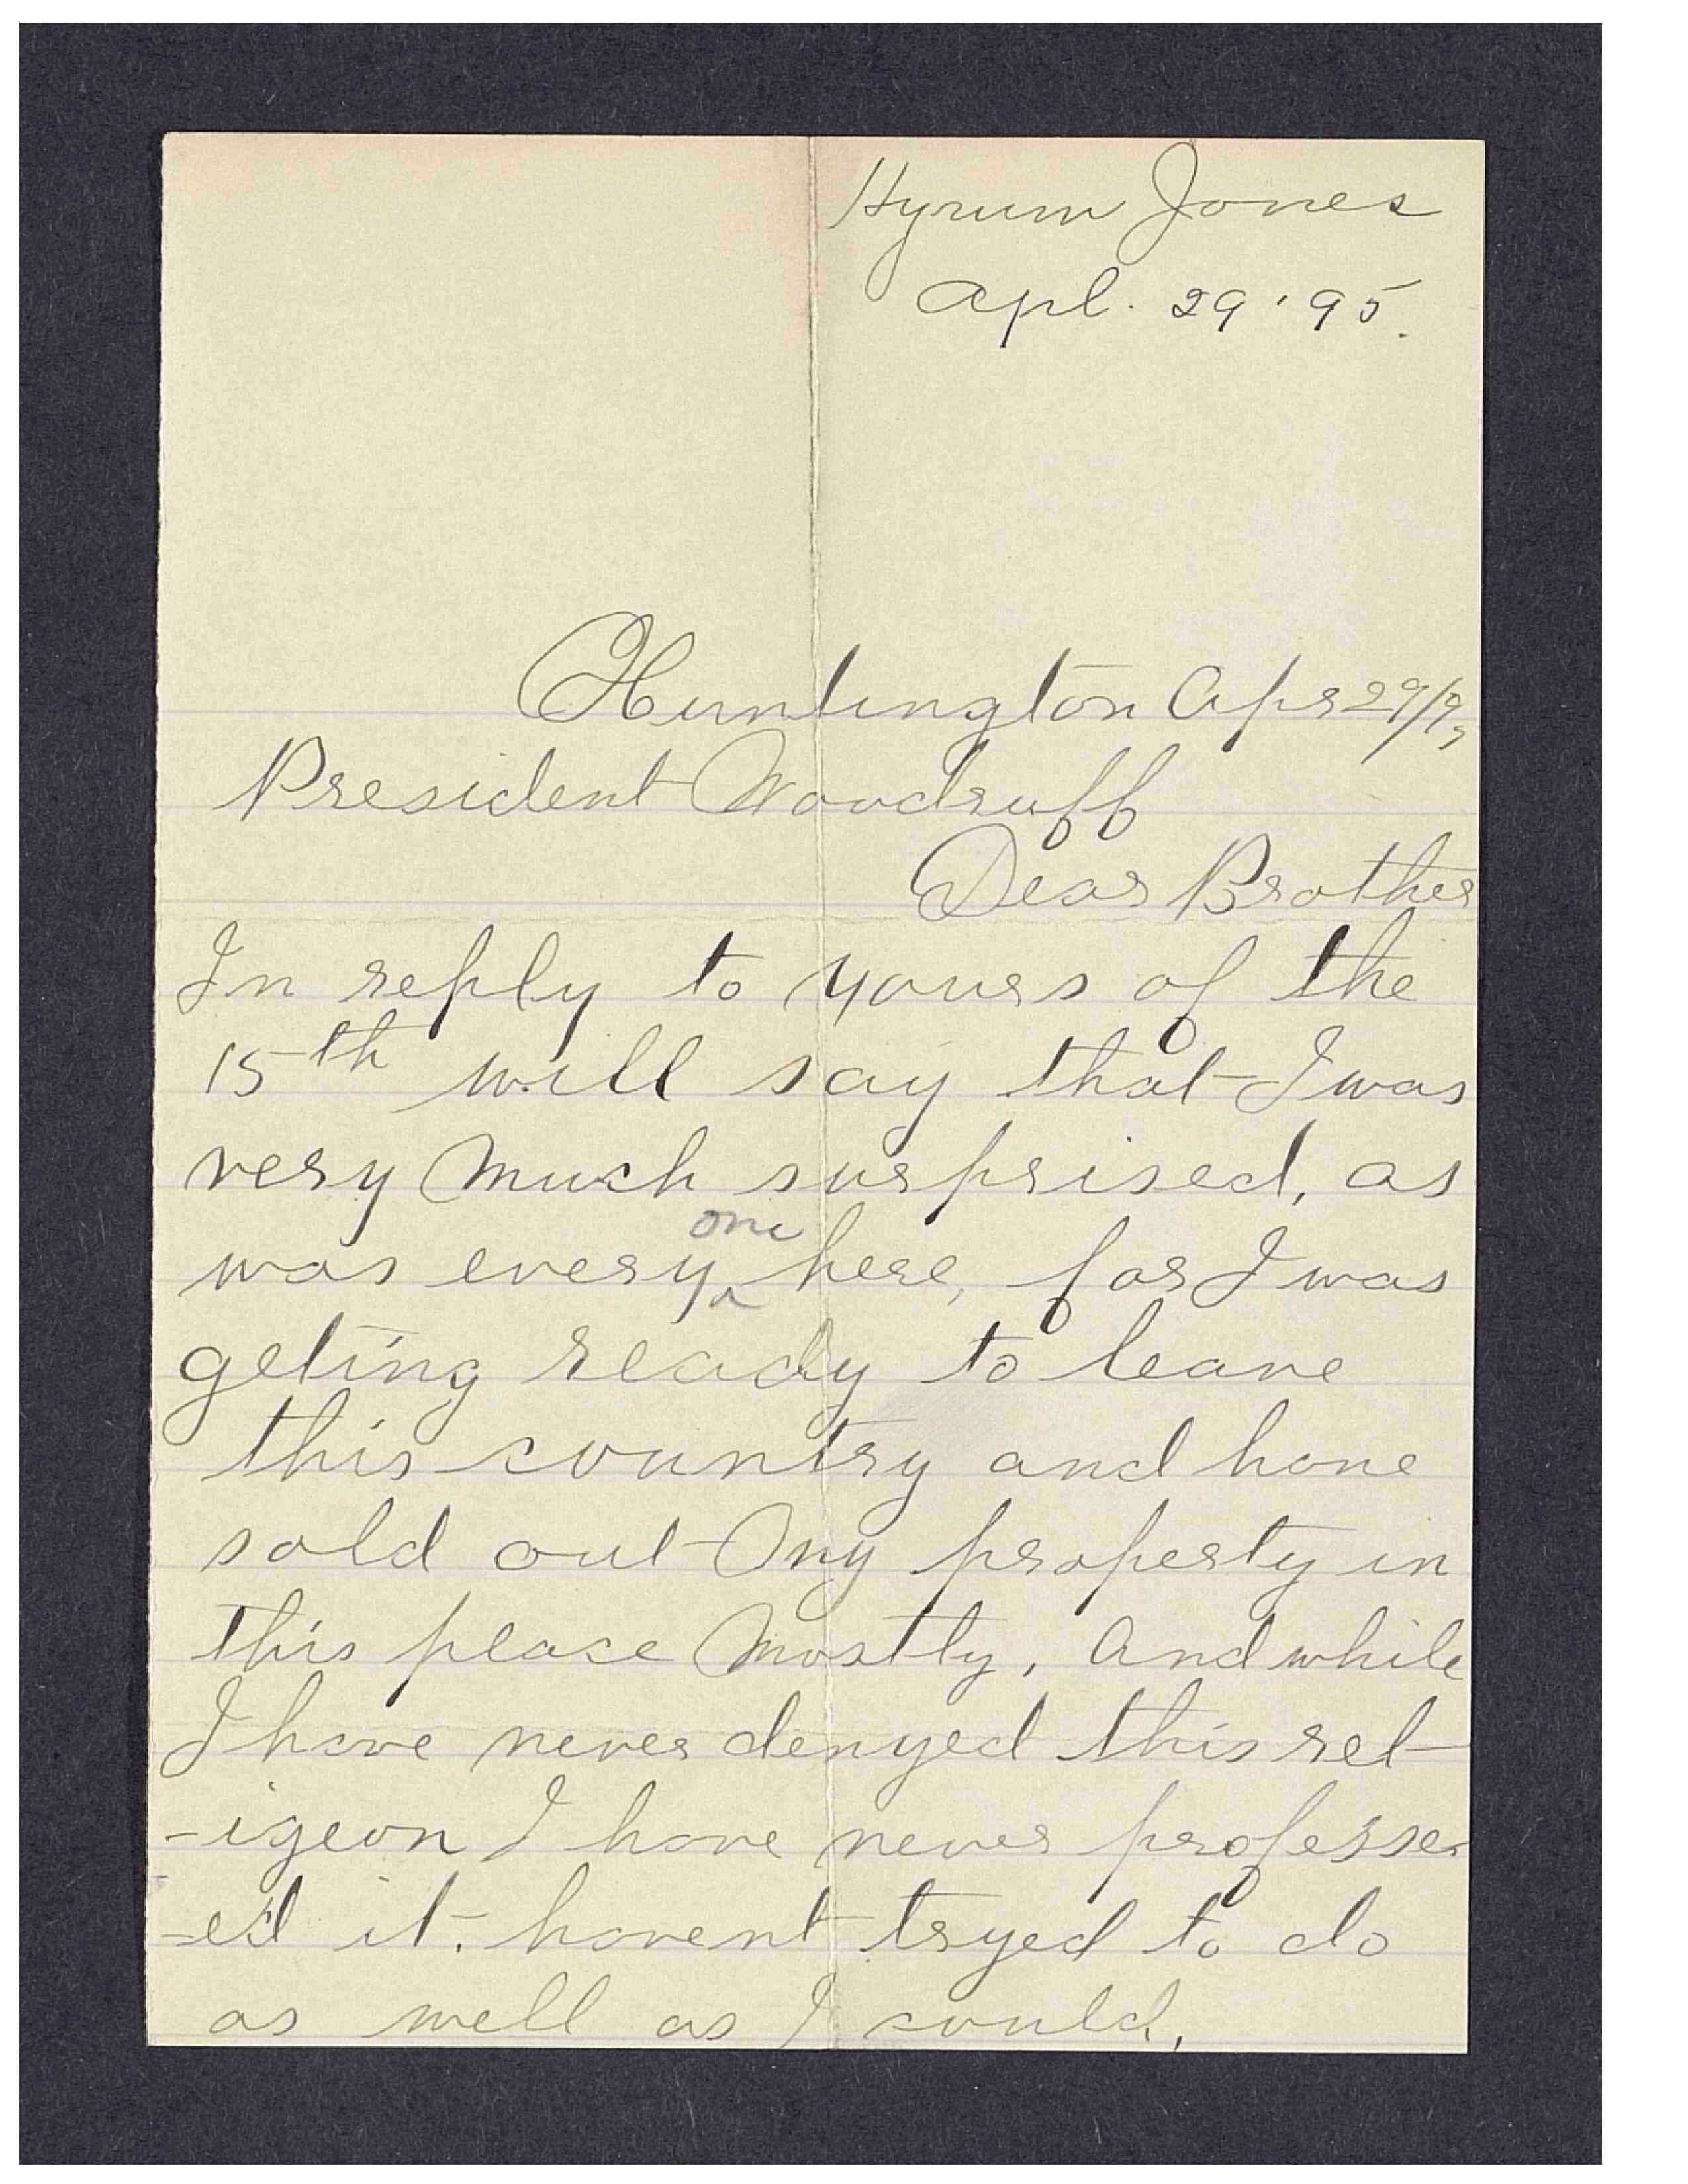 Hyrum Jones
Apl. 29 '95.
Huntington Apr 29/95
President Woodruff
Dear Brother
In reply to yours of the
15th will say that I was
very much surprised, as
one
was every ^ here, for I was
geting ready to leave
this country and have
sold out My property in
this place Mostly, And while
I have never denyed this rel-
-igeon I have never professe-
-ed it. havent tryed to do
as well as I could,